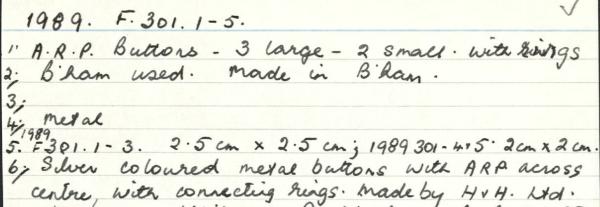 1989. F. 301. 1-5.
1; A.R.P. Buttons - 3 large - 2 small. with rings
2; B'ham used. Made in B'ham.
3;
4; metal
5. 1989 F301. 1-3. 2.5 cm x 2.5 cm; 1989 301-4+5. 2cm x 2cm.
6; Silver coloured metal buttons with ARP across
centre, with connecting rings. Made by H+H. Ltd.